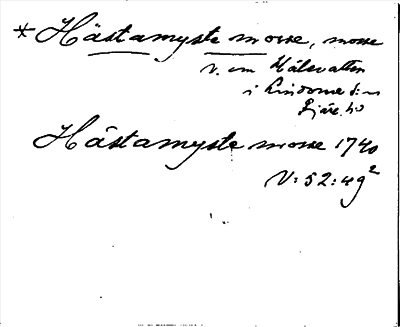 * Hästamyste mosse, mosse
v. om Hålsvatten
i Lindome s:n
Fjäre hd
Hästamyste mosse 1740
V:52:49²